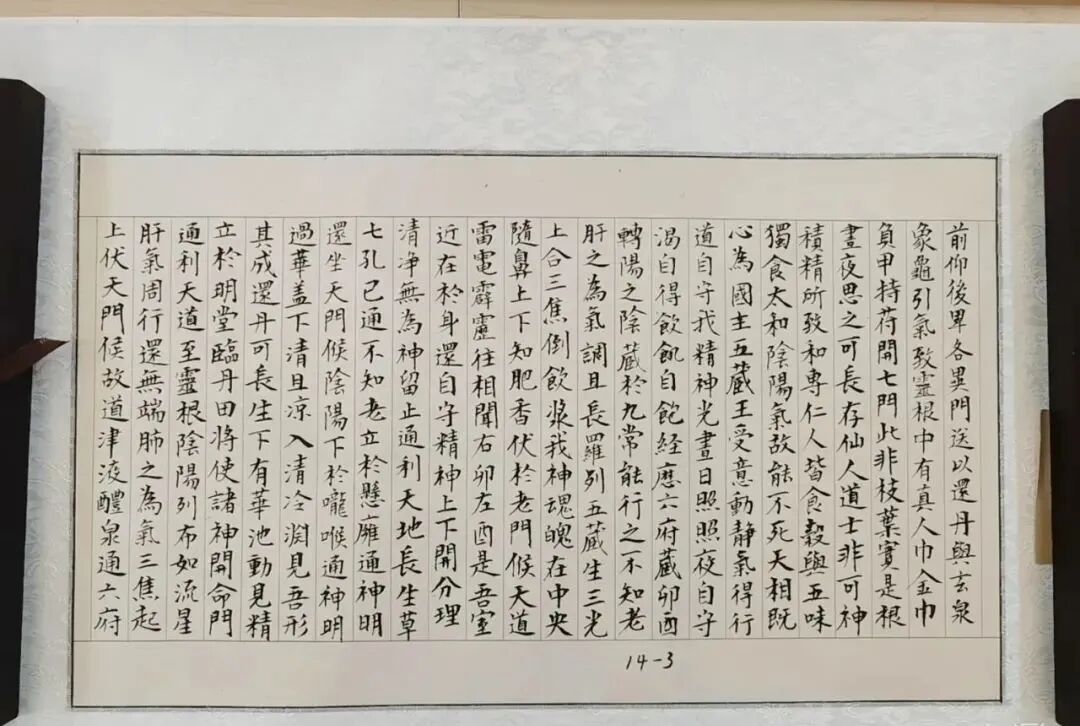 前仰後卑各異門送以還丹與玄泉
象龜引氣致靈根中有真人巾金巾
負甲持苻開七門此非枝葉實是根
晝夜思之可長存仙人道士非可神
積精所致和專仁人皆食穀與五味
獨食太和陰陽氣故能不死天相既
心為國主五藏王受意動靜氣得行
道自守我精神光晝日照照夜自守
渴自得飲飢自飽経歷六府藏卯酉
轉陽之陰藏於九常能行之不知老
肝之為氣調且長羅列五藏生三光
上合三焦倒飲漿我神魂魄在中央
隨鼻上下知肥香伏於老門候天道
雷電霹靂往相聞右卯左酉是吾室
近在於身還自守精神上下開分理
清净無為神留止通利天地長生草
七孔已通不知老立於懸膺通神明
還坐天門候陰陽下於嚨喉通神明
過華盖下清且凉入清冷淵見吾形
其成還丹可長生下有華池動見精
立於明堂臨丹田將使諸神開命門
通利天道至靈根陰陽列布如流星
肝氣周行還無端肺之為氣三焦起
上伏天門候故道津液醴泉通六府
14-3